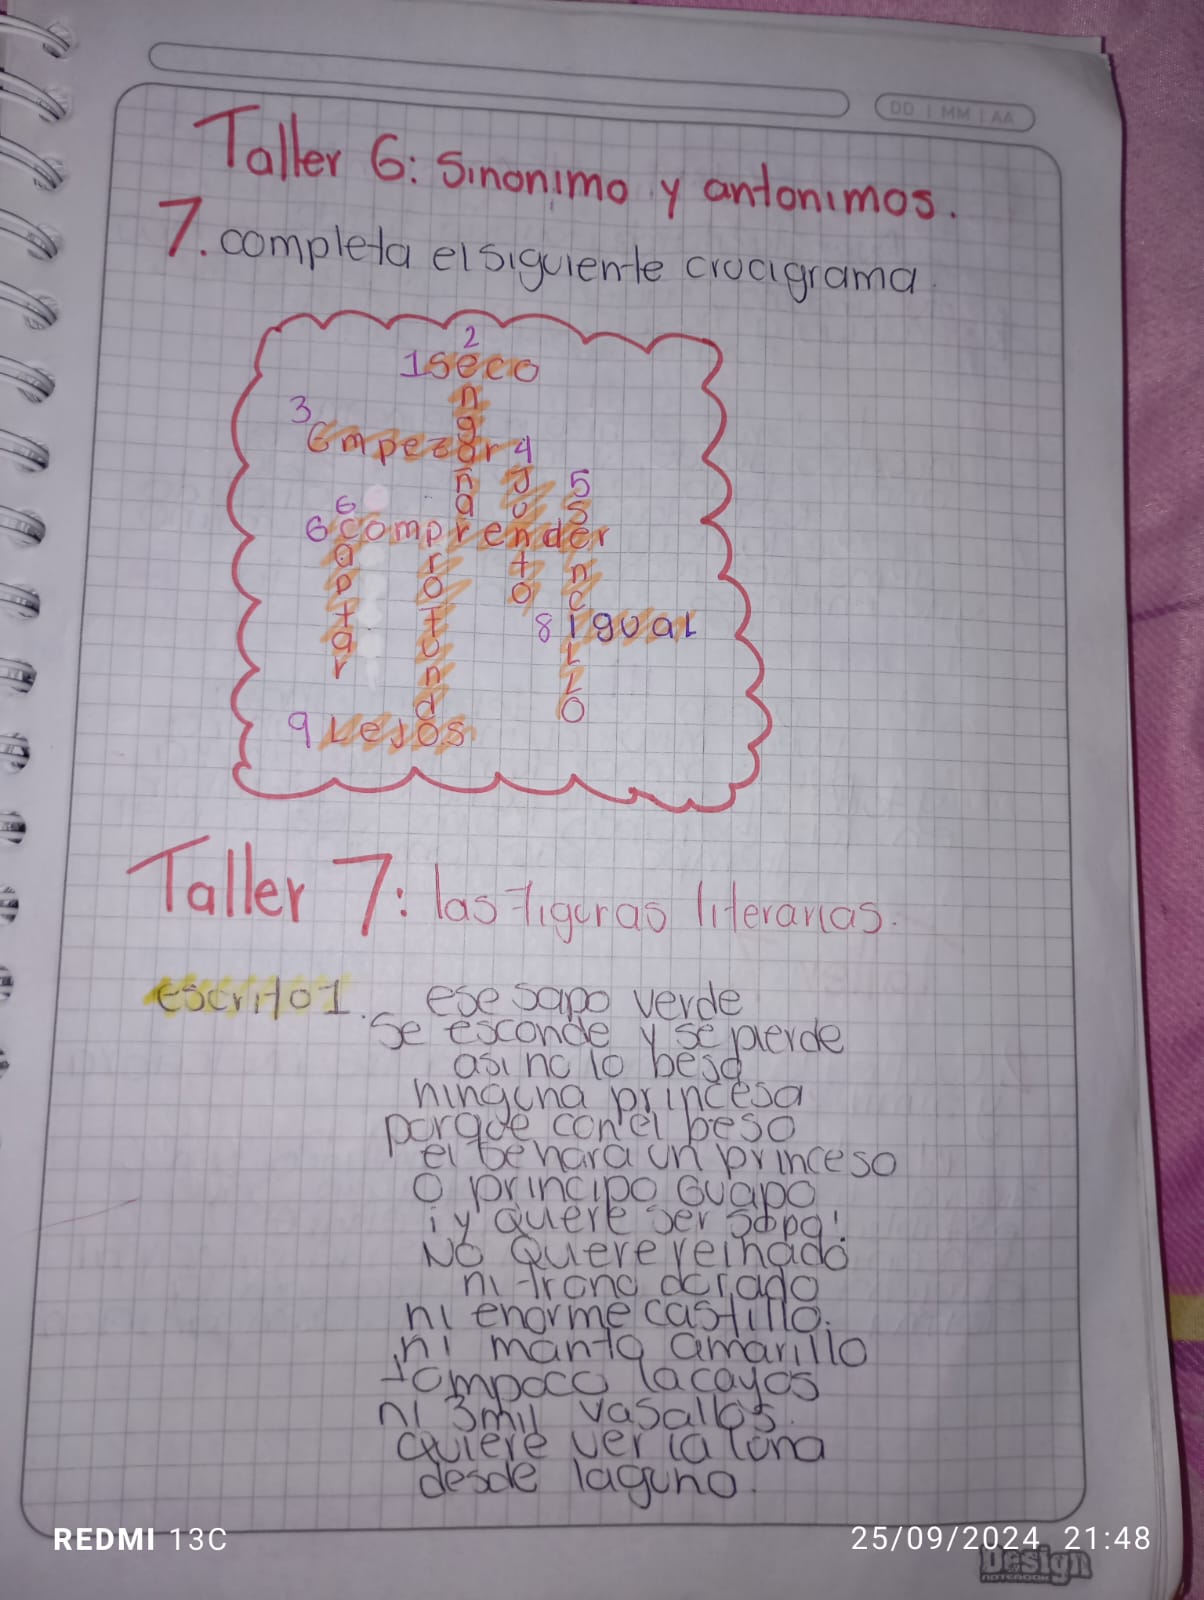 DD | MM | AA
Taller 6: Sinonimo y antonimos.
7. completa el siguiente crucigrama.
2
1 seco
3
Empezar 4
5
6
6 comprender
engañar
Junto
sencillo
captar
profundo
8 igual
9 Lejos
Taller 7: las figuras literarias.
escrito 1. ese sapo verde
se esconde y se pierde
asi no lo besa
ninguna princesa
porque con el beso
el se hara un princeso
o principo Guapo
¡y quiere ser sapo!
No Quiere reinado
ni trono dorado
ni enorme castillo.
ni manto amarillo
tampoco lacayos
ni 3 mil vasallos.
quiere ver la luna
desde laguna.
REDMI 13C
25/09/2024 21:48
Design
NOTEBOOK